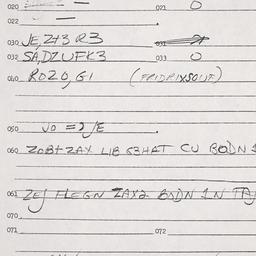 020 — 021 0
022 —
030 JE,Z+3 R3 031
032 SA,DZUFK3 033 0
040 ROZO,GI (FRIDRIXSOUF)
050 VO = 2 JE
060 ZOB+ZAX LIB G3HAT CU BODN 1
061 ZEJ FLEGN ZAX2 BODN 1N TAJ
070
071 072